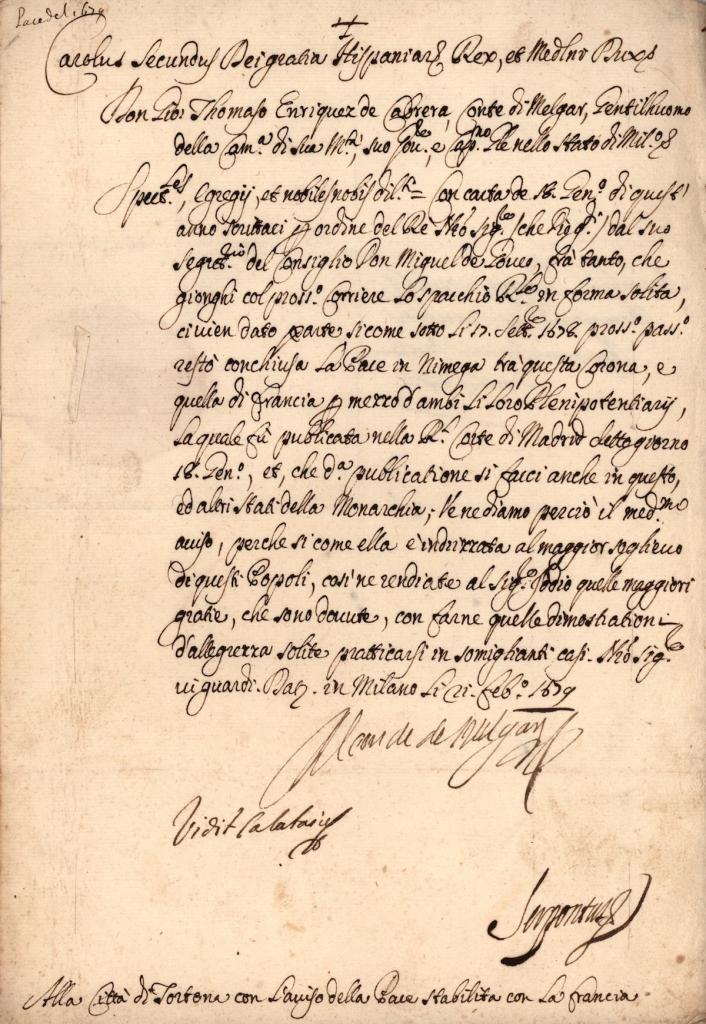 Pace del 1679
Carolus Secundus Dei gratia Hispaniar Rex, et Medlni Dux &
Don Gio: Thomaso Enriquez de Cabrera, Conte di Melgar, Gentilhuomo
della Cam.ra di sua M.tà, suo Gov.re, e Cap.no G͞le nello stato di Mil.o &
Spect.les, Egregij, et nobiles nobis dil.mi = Con carta de 18. Gen.o di quest'
anno scrittaci p ordine del Re N͞ro Sig.re (che Dio g.di) dal suo
segret.rio del Consiglio Don Miguel de fra tanto, che
gionghi col pross.o Corriere Lo spacchio R.le in forma solita,
ci vien dato parte si come sotto Li 17. Sett.re 1678. pross.o pass.o
restò conchiusa La Pace in Nimega trà questa Corona, e
quella di Francia p mezzo d'ambi Li Loro Plenipotentiarij,
La quale fù publicata nella R.l Corte di Madrid detto giorno
18. Gen.o, et, che d.a publicatione si facci anche in questo,
ed altri stati della Monarchia; Ve ne diamo perciò il med.mo
auiso, perche si come ella è indrizzata al maggior soglieuo
di questi Popoli, così ne rendiate al Sig.re Iddio quelle maggiori
gratie, che sono douute, con farne quelle dimostrationi
d'allegrezza solite pratticarsi in somiglianti casi. N͞ro Sig.re
ui guardi. Dat. in Milano Li 21. Feb.o 1679
El Conde de Melgar
Vidit Calataiud
Serpontus
Alla Città di Tortona con L'auiso della Pace stabilita con La Francia